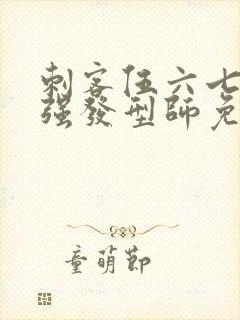 刺客伍六七
强發型師免
童萌節